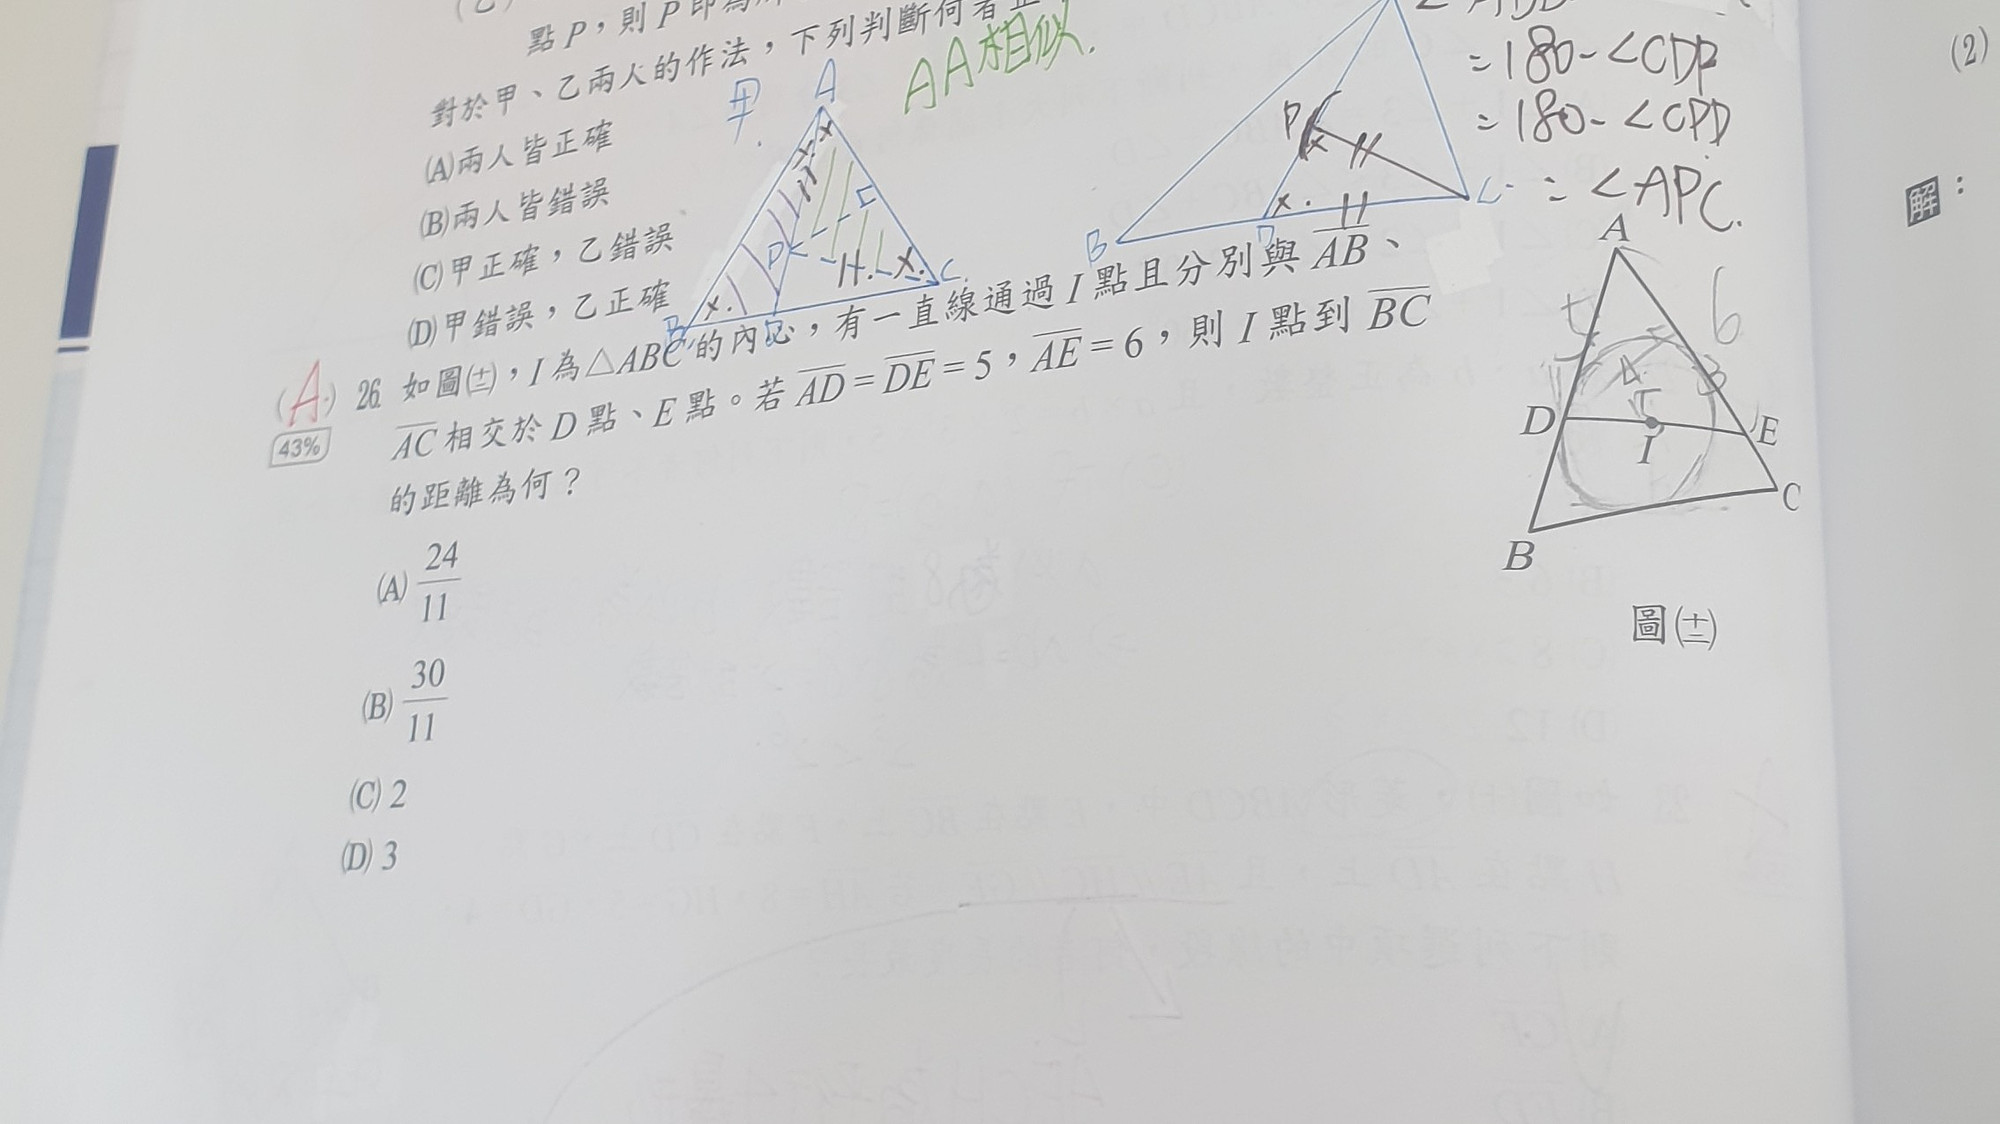 點 P，則 P 即為
對於甲、乙兩人的作法，下列判斷何者正
(A)兩人皆正確
(B)兩人皆錯誤
(C)甲正確，乙錯誤
(D)甲錯誤，乙正確
甲.
A
P
E
B
D
C
AA相似.
P
B
D
C
= 180 - ∠CDP
= 180 - ∠CPD
= ∠APC.
(A) 26. 如圖(十二)，I 為△ABC 的內心，有一直線通過 I 點且分別與 AB、
43%
AC 相交於 D 點、E 點。若 AD = DE = 5，AE = 6，則 I 點到 BC
的距離為何？
(A) 24/11
(B) 30/11
(C) 2
(D) 3
A
6
3
D
I
E
C
B
圖(十二)
(2)
解：